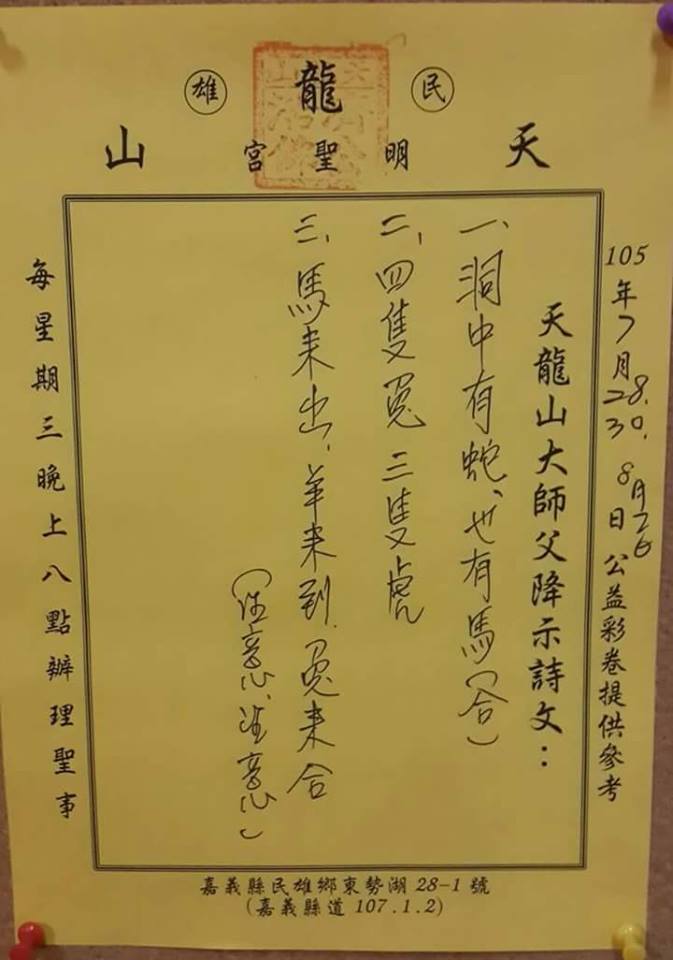 民龍雄
天明聖宮山
105年7月28.30. 8月26日公益彩卷提供參考
天龍山大師父降示詩文：
一、洞中有蛇、也有馬(合)
二、四隻兔三隻虎
三、馬来出、羊来到、兔来合
(注意、注意)
每星期三晚上八點辦理聖事
嘉義縣民雄鄉東勢湖28-1號
(嘉義縣道107.1.2)